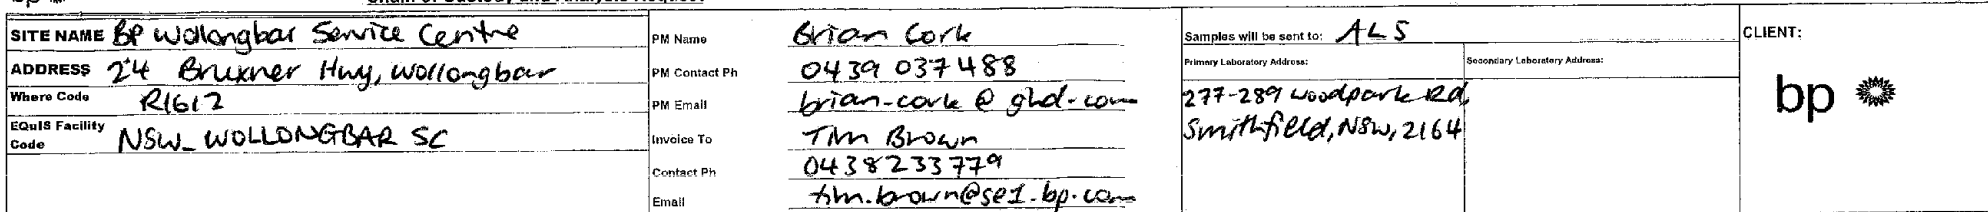 bp
Chain of Custody and Analysis Request
SITE NAME BP Wollongbar Service Centre
ADDRESS 24 Bruxner Hwy, Wollongbar
Where Code R1612
EQuIS Facility Code NSW_WOLLONGBAR SC
PM Name Brian Cork
PM Contact Ph 0439 037 488
PM Email brian-cork @ ghd.com
Invoice To Tim Brown
Contact Ph 0438233779
Email tim.brown@se1.bp.com
Samples will be sent to: ALS
Primary Laboratory Address:
277-289 Woodpark Rd,
Smithfield, NSW, 2164
Secondary Laboratory Address:
CLIENT:
bp